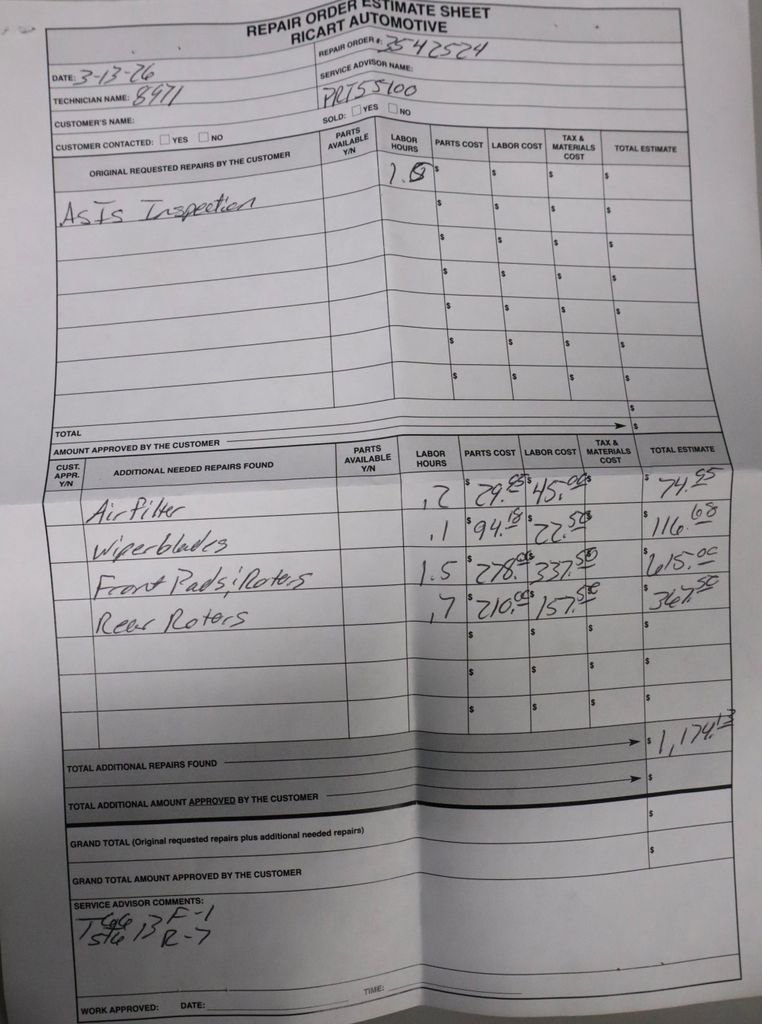 REPAIR ORDER ESTIMATE SHEET
RICART AUTOMOTIVE
DATE: 3-13-26 REPAIR ORDER #: 3542524
TECHNICIAN NAME: 8971 SERVICE ADVISOR NAME: PRTS5100
CUSTOMER'S NAME: SOLD: YES NO
CUSTOMER CONTACTED: YES NO
ORIGINAL REQUESTED REPAIRS BY THE CUSTOMER PARTS AVAILABLE Y/N LABOR HOURS PARTS COST LABOR COST TAX & MATERIALS COST TOTAL ESTIMATE
As Is Inspection $ $ $ $
$ $ $ $
$ $ $ $
$ $ $ $
$ $ $ $
$ $ $ $
$ $ $ $
TOTAL $
AMOUNT APPROVED BY THE CUSTOMER $
CUST. APPR. Y/N ADDITIONAL NEEDED REPAIRS FOUND PARTS AVAILABLE Y/N LABOR HOURS PARTS COST LABOR COST TAX & MATERIALS COST TOTAL ESTIMATE
Air filter .2 $29.95 $45.00 $ $74.95
Wiperblades .1 $94.18 $22.50 $ $116.68
Front Pads; Roters 1.5 $278.00 $337.50 $ $615.00
Rear Roters .7 $210.00 $157.50 $ $367.50
$ $ $ $
$ $ $ $
$ $ $ $
TOTAL ADDITIONAL REPAIRS FOUND $1,174.13
TOTAL ADDITIONAL AMOUNT APPROVED BY THE CUSTOMER $
GRAND TOTAL (Original requested repairs plus additional needed repairs) $
GRAND TOTAL AMOUNT APPROVED BY THE CUSTOMER $
SERVICE ADVISOR COMMENTS:
F-1
R-7
WORK APPROVED: DATE: TIME: